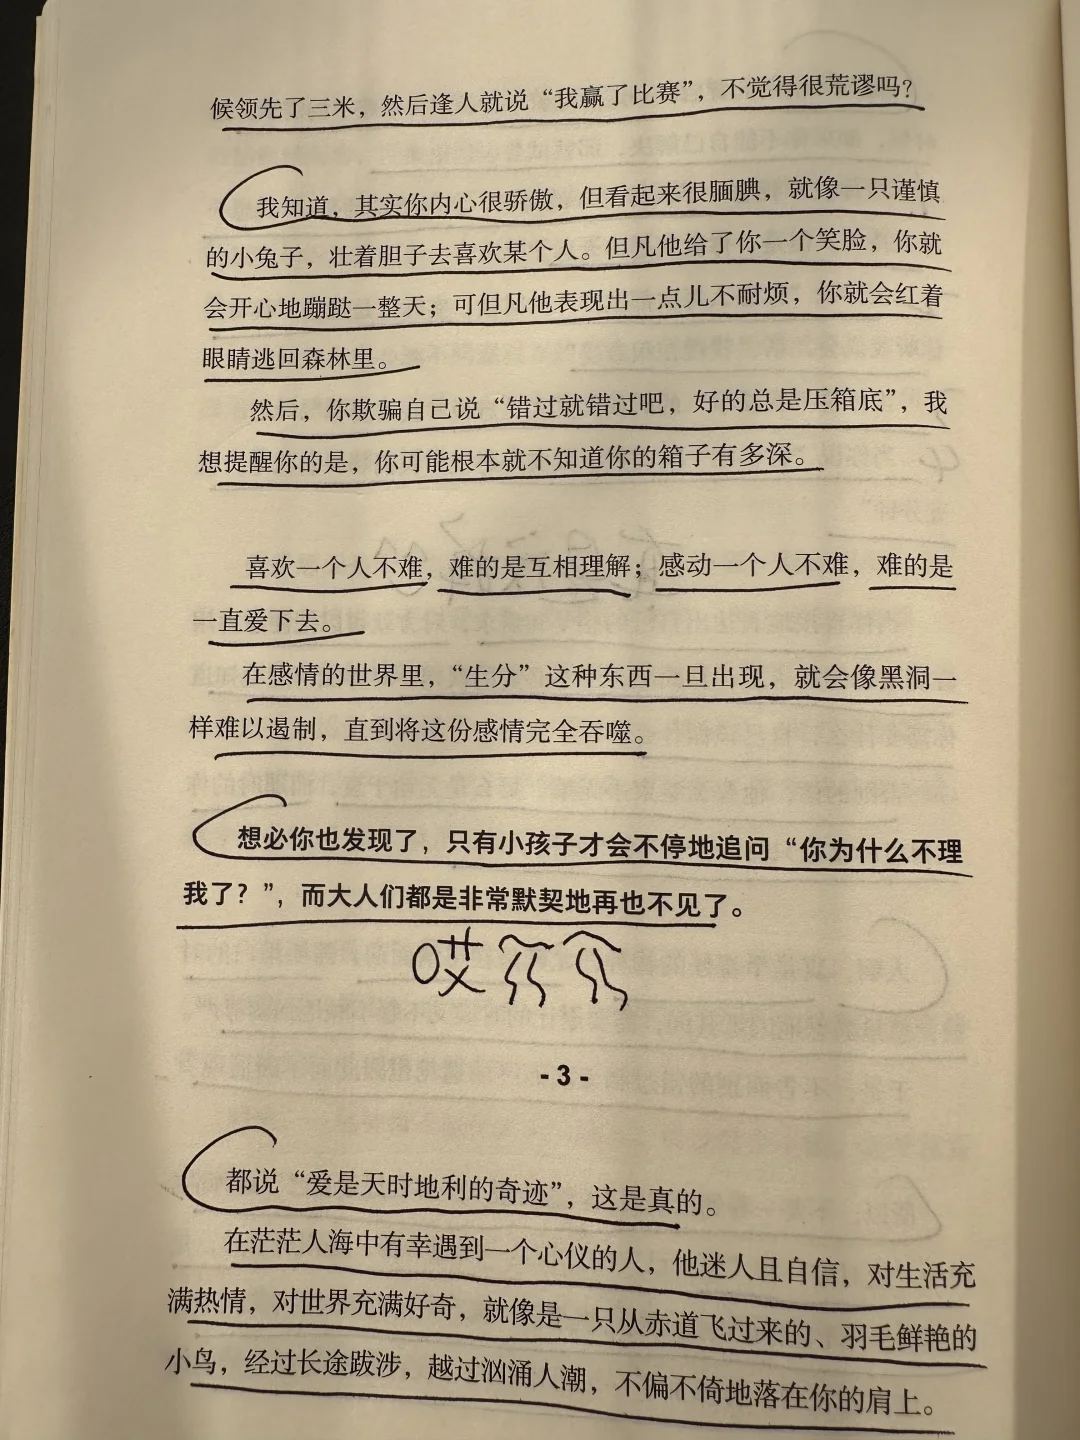 候领先了三米，然后逢人就说“我赢了比赛”，不觉得很荒谬吗？
我知道，其实你内心很骄傲，但看起来很腼腆，就像一只谨慎
的小兔子，壮着胆子去喜欢某个人。但凡他给了你一个笑脸，你就
会开心地蹦跶一整天；可但凡他表现出一点儿不耐烦，你就会红着
眼睛逃回森林里。
然后，你欺骗自己说“错过就错过吧，好的总是压箱底”，我
想提醒你的是，你可能根本就不知道你的箱子有多深。
喜欢一个人不难，难的是互相理解；感动一个人不难，难的是
一直爱下去。
在感情的世界里，“生分”这种东西一旦出现，就会像黑洞一
样难以遏制，直到将这份感情完全吞噬。
想必你也发现了，只有小孩子才会不停地追问“你为什么不理
我了？”，而大人们都是非常默契地再也不见了。
哎
- 3 -
都说“爱是天时地利的奇迹”，这是真的。
在茫茫人海中有幸遇到一个心仪的人，他迷人且自信，对生活充
满热情，对世界充满好奇，就像是一只从赤道飞过来的、羽毛鲜艳的
小鸟，经过长途跋涉，越过汹涌人潮，不偏不倚地落在你的肩上。